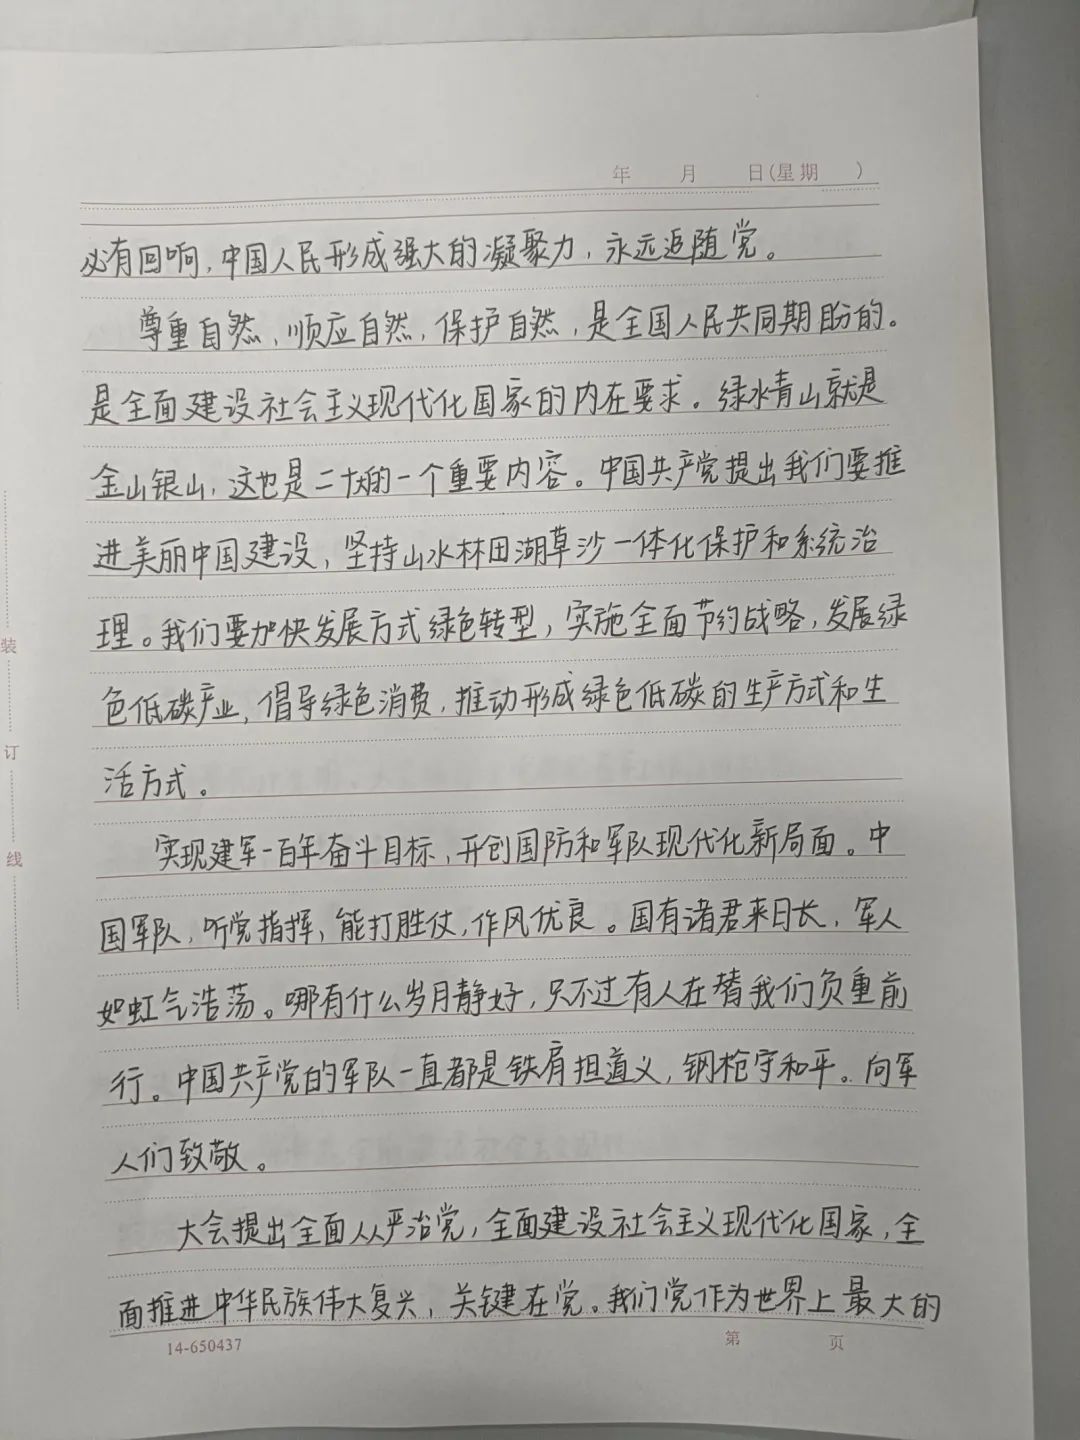 年 月 日(星期 )
必有回响,中国人民形成强大的凝聚力,永远追随党。
尊重自然,顺应自然,保护自然,是全国人民共同期盼的。
是全面建设社会主义现代化国家的内在要求。绿水青山就是
金山银山,这也是二十大的一个重要内容。中国共产党提出我们要推
进美丽中国建设,坚持山水林田湖草沙一体化保护和系统治
理。我们要加快发展方式绿色转型,实施全面节约战略,发展绿
色低碳产业,倡导绿色消费,推动形成绿色低碳的生产方式和生
装
订
活方式。
线
实现建军一百年奋斗目标,开创国防和军队现代化新局面。中
国军队,听党指挥,能打胜仗,作风优良。国有诸君来日长,军人
如虹气浩荡。哪有什么岁月静好,只不过有人在替我们负重前
行。中国共产党的军队一直都是铁肩担道义,钢枪守和平。向军
人们致敬。
大会提出全面从严治党,全面建设社会主义现代化国家,全
面推进中华民族伟大复兴,关键在党。我们党作为世界上最大的
14-650437 第 页